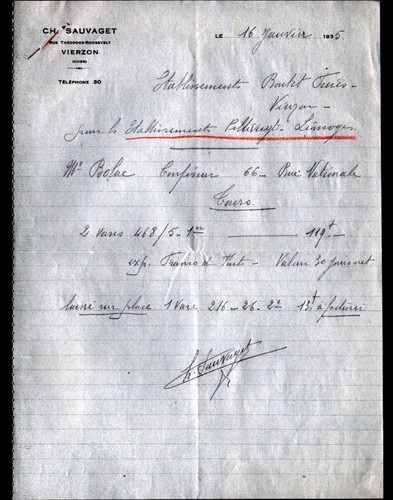 CH. SAUVAGET
RUE THÉODORE-ROOSEVELT
VIERZON
(CHER)
TÉLÉPHONE 30
LE 16 Janvier 1935
Etablissements Boulet Frères -
Vierzon -
pour les Etablissements Limoges
Mr Bolac Confiseur 66 - Rue Nationale
Tours
2 vases 468/5 - 1er 119f -
exp. Franco d' - Valeur 30 jours net
laissé sur place 1 vase 216 - 26 - 2e 13f à facturer
Ch. Sauvaget